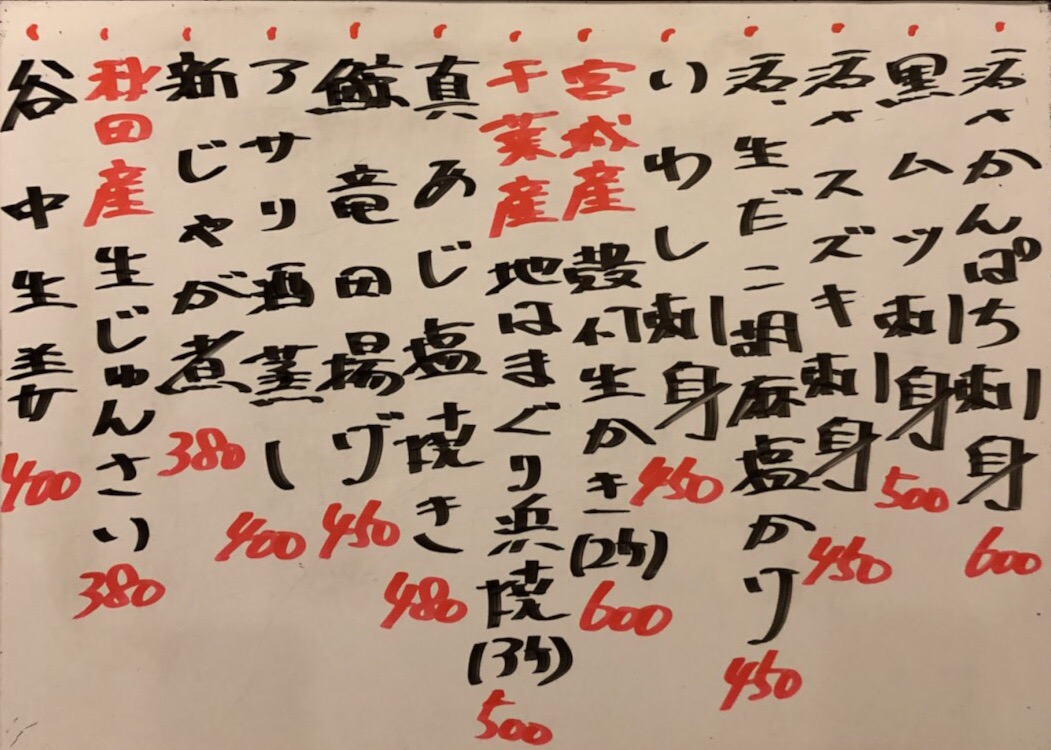 活〆かんぱち刺身 600
黒ムツ刺身 500
活〆スズキ刺身 450
活〆生だこ胡麻塩かけ 450
いわし刺身 450
宮城産殻付生かき(2ケ) 600
千葉産地はまぐり浜焼(3ケ) 500
真あじ塩焼き 480
鯨竜田揚げ 450
アサリ酒蒸し 400
新じゃが煮 380
秋田産生じゅんさい 380
谷中生姜 400